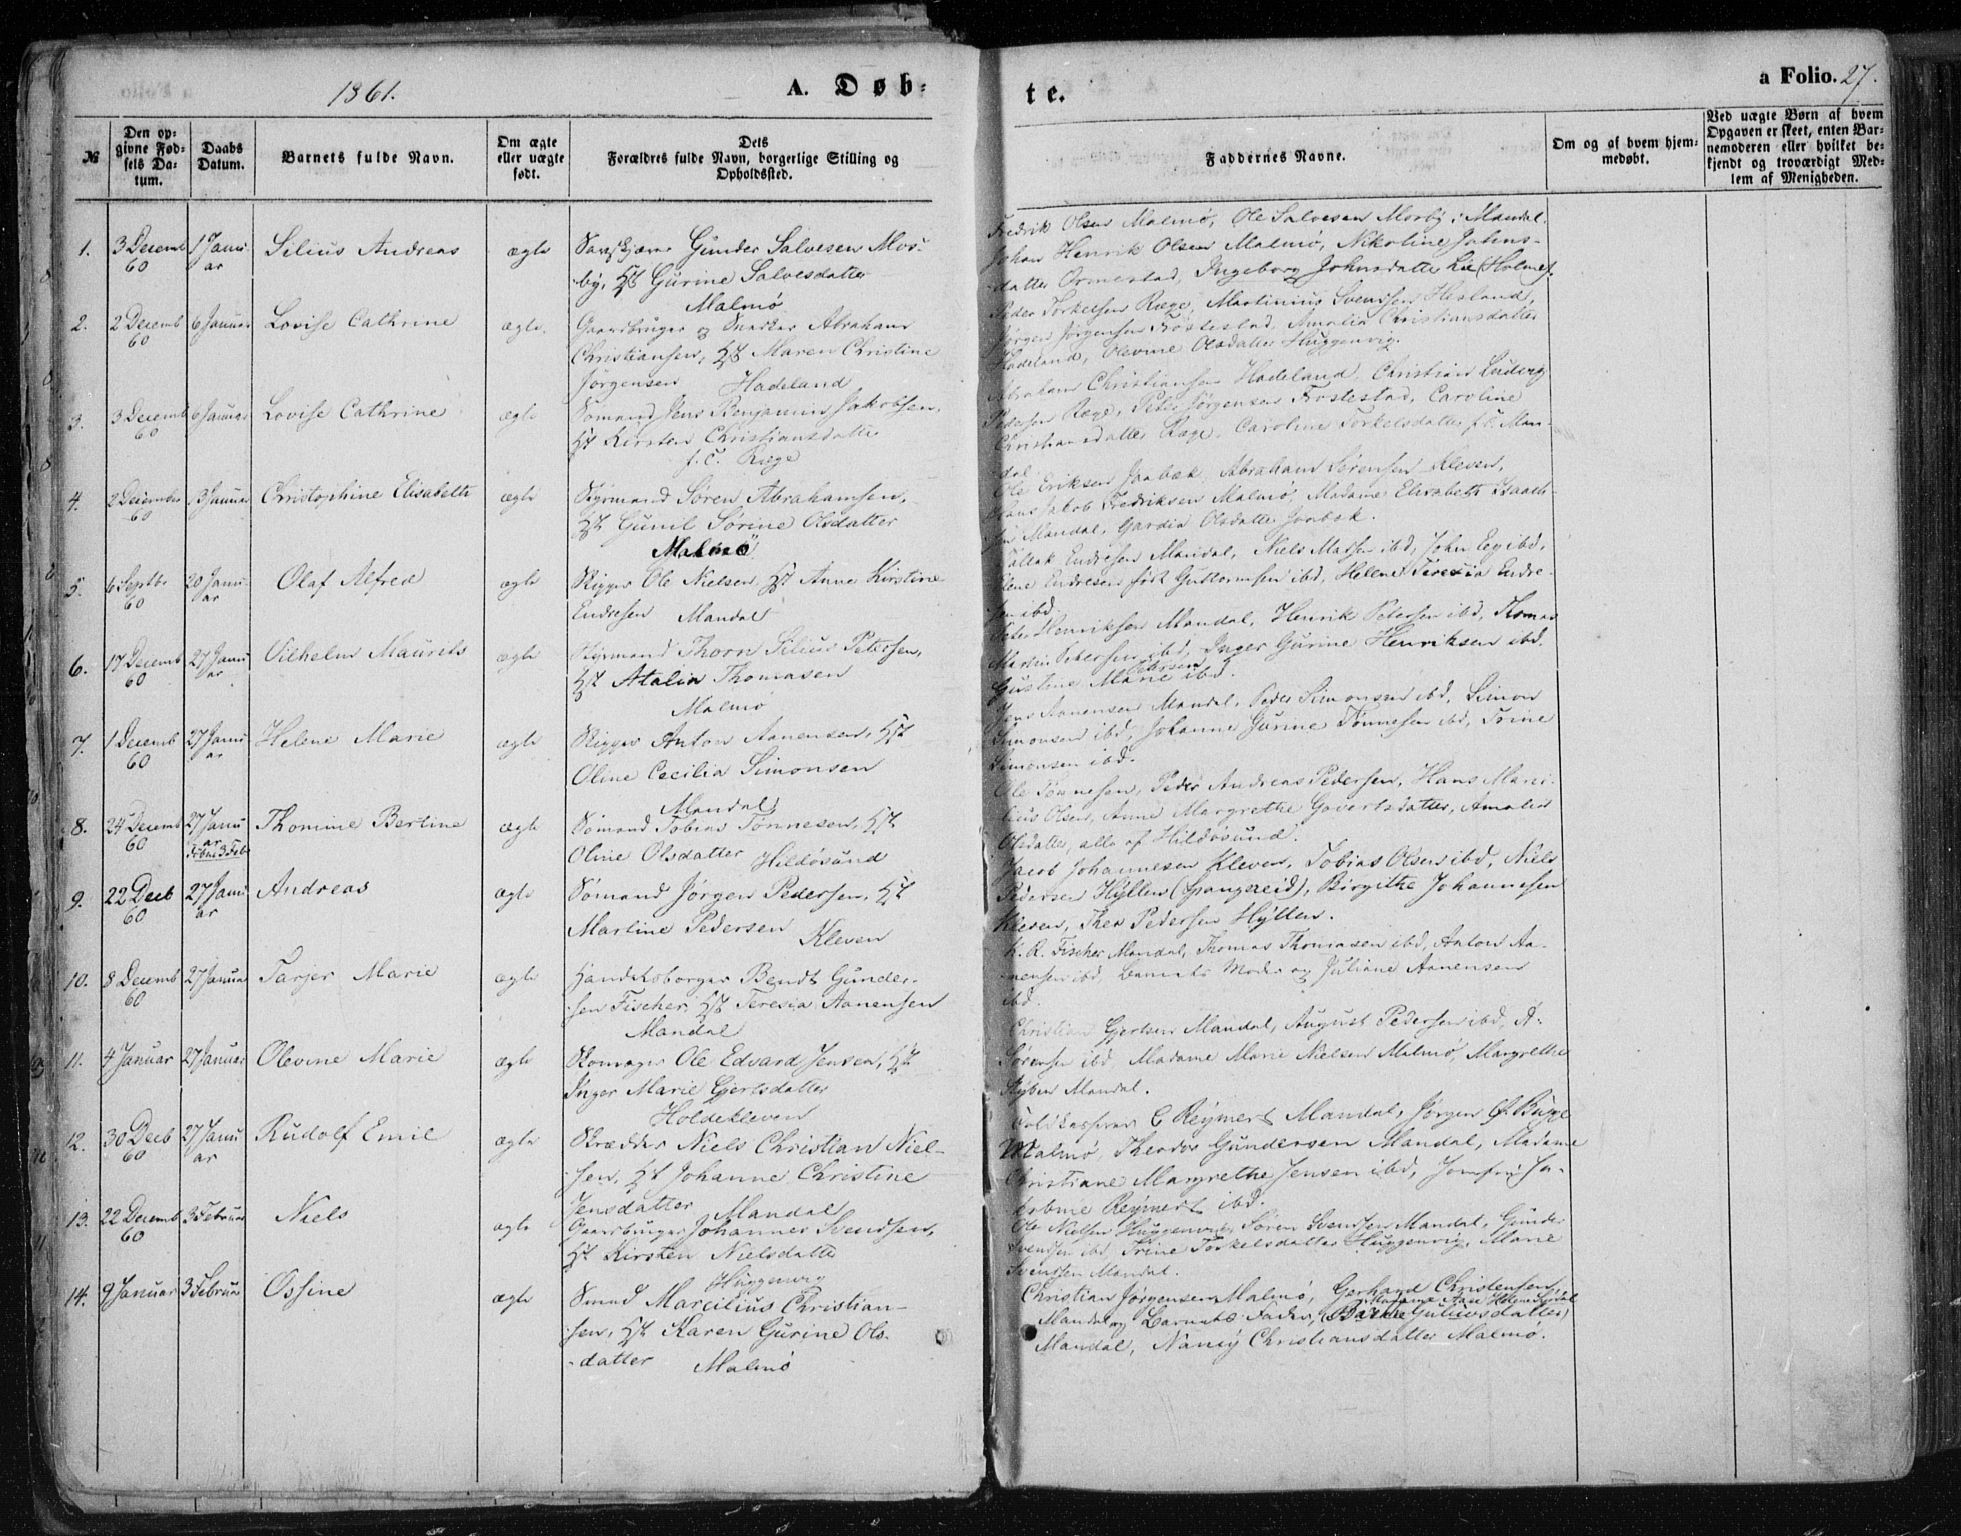 1861.
A. Døb-
te.
a Folio. 27.
№
Den op-
givne Fød-
sels Da-
tum.
Daabs
Datum.
Barnets fulde Navn.
Om ægte
eller uægte
født.
Dets
Forældres fulde Navn, borgerlige Stilling og
Opholdssted.
Faddernes Navne.
Om og af hvem hjem-
medøbt.
Ved uægte Børn af hvem
Opgaven er skeet, enten Bar-
nemoderen eller hvilket be-
kjendt og troværdigt Med-
lem af Menigheden.
1.
3 Decemb
60
1 Janu-
ar
Silius Andreas
ægte
Gunder Salvesen Mos-
by, Hst Gurine Salvesdatter
Malmø
Fredrik Olsen Malmø, Ole Salvesen Mosby i Mandal.
Johan Henrik Olsen Malmø, Nikoline Johns-
datter Ormestad, Ingeborg Johnsdatter Lie (Holme).
2.
2 Decemb
60
6 Januar
Lovise Cathrine
ægte
Gaardbruger og Snedker Abraham
Christiansen, Hst Maren Christine
Jørgensen Hadeland
Peder Torkelsen Ræge, Martinius Svendsen Hesland,
Jørgen Jørgensen Frøstestad, Amalia Christiansdatter
Hadeland, Olevine Olsdatter Huggenvig.
3.
3 Decemb
60
6 Januar
Lovise Cathrine
ægte
Sømand Jens Benjamin Jakobsen,
Hst Kirsten Christiansdatter
f. T. Ræge
Abraham Christiansen Hadeland, Christian Ludvig
Pedersen Ræge, Peter Jørgensen Frostestad, Caroline
Christiansdatter Ræge, Caroline Torkelsdatter f. T. Man-
dal
4.
2 December
60
13 Januar
Christophine Elisabeth
ægte
Styrmand Søren Abrahamsen,
Hst Gunil Sørine Olsdatter
Malmø
Ole Eriksen Jaabæk, Abraham Sørensen Kleven,
Hans Jakob Fredriksen Malmø, Madame Elisabeth Isaach-
sen Mandal, Gardia Olsdatter Jaabæk.
5.
6 Septbr
60
20 Janu-
ar
Olaf Alfred
ægte
Rigger Ole Nielsen, Hst Anne Kirstine
Endresen Mandal
Tallak Endresen Mandal, Niels Matsen ibd, John Eeg ibd,
Elene Endresen født Guttormsen ibd, Helene Teresia Endre-
sen ibd
6.
17 Decemb
60
27 Janu
ar
Vilhelm Maurits
ægte
Styrmand Thorn Silius Petersen,
Hst Atalia Thomasen
Malmø
Peter Henriksen Mandal, Henrik Petersen ibd, Thomas
Martin Petersen ibd, Inger Gurine Henriksen ibd.
Gustine Marie Petersen ibd.
7.
1 Decemb
60
27 Janu
ar
Helene Marie
ægte
Rigger Anton Aanensen, Hst
Oline Cecilia Simonsen
Mandal
Jens Aanensen Mandal, Peder Simonsen ibd, Simon
Simonsen ibd, Johanne Gurine Tønnesen ibd, Trine
Simonsen ibd.
8.
24 Decemb
60
27 Janu
ar
Thomine Bertine
ægte
Sømand Tobias Tønnesen, Hst
Oline Olsdatter Hildøsund
Ole Tønnesen, Peder Andreas Pedersen, Hans Marci-
lius Olsen, Anne Margrethe Govertsdatter, Amalia
Olsdatter, alle af Hildøsund.
9.
22 Decb
60
27 Janu
ar
Andreas
ægte
Sømand Jørgen Pedersen, Hst
Martine Pedersen Kleven
Jacob Johannesen Kleven, Tobias Olsen ibd, Niels
Pedersen Hyllen (Spangereid), Birgithe Johannesen
Kleven, Thea Pedersen Hyllen.
10.
8 Decemb
60
27 Januar
Tarjer Marie
ægte
Handelsborger Bendt Gunder-
sen Fischer, Hst Teresia Aanensen
Mandal
K. R. Fischer Mandal, Thomas Thomasen ibd, Anton Aa-
nensen ibd, Barnets Moder og Juliane Aanensen
ibd.
11.
4 Januar
27 Januar
Olevine Marie
ægte
Skomager Ole Edvard Jensen, Hst
Inger Marie Gjertsdatter
Holdekleven
Christian Gjertsen Mandal, August Pedersen ibd, A-
Sørensen ibd, Madame Marie Nielsen Malmø, Margrethe
Nyben Mandal.
12.
30 Decb
60
27 Janu
ar
Rudolf Emil
ægte
Skrædder Niels Christian Niel-
sen, Hst Johanne Christine
Jensdatter Mandal
Toldkasserer C Reymert Mandal, Jørgen Bugge
Malmø, Theodor Gundersen Mandal, Madame
Christiane Margrethe Jensen ibd, Jomfru Ja-
kobine Reymert ibd.
13.
22 Decemb
60
3 Februar
Niels
ægte
Gaardbruger Johannes Svendsen,
Hst Kirsten Nielsdatter
Huggenvig
Ole Nielsen Huggenvig, Søren Svendsen Mandal, Gunder
Svendsen ibd, Trine Torkelsdatter Huggenvig, Marie
Svendsen Mandal.
14.
9 Januar
3 Februar
Ossine
ægte
Smed Marcilius Christian-
sen, Hst Karen Gurine Ols-
datter Malmø
Christian Jørgensen Malmø, Gerhard Christensen
Mandal og Barnets Fader, Madame Aase Helene
(Berthe Juliusdatter)
Mandal, Nancy Christiansdatter Malmø.